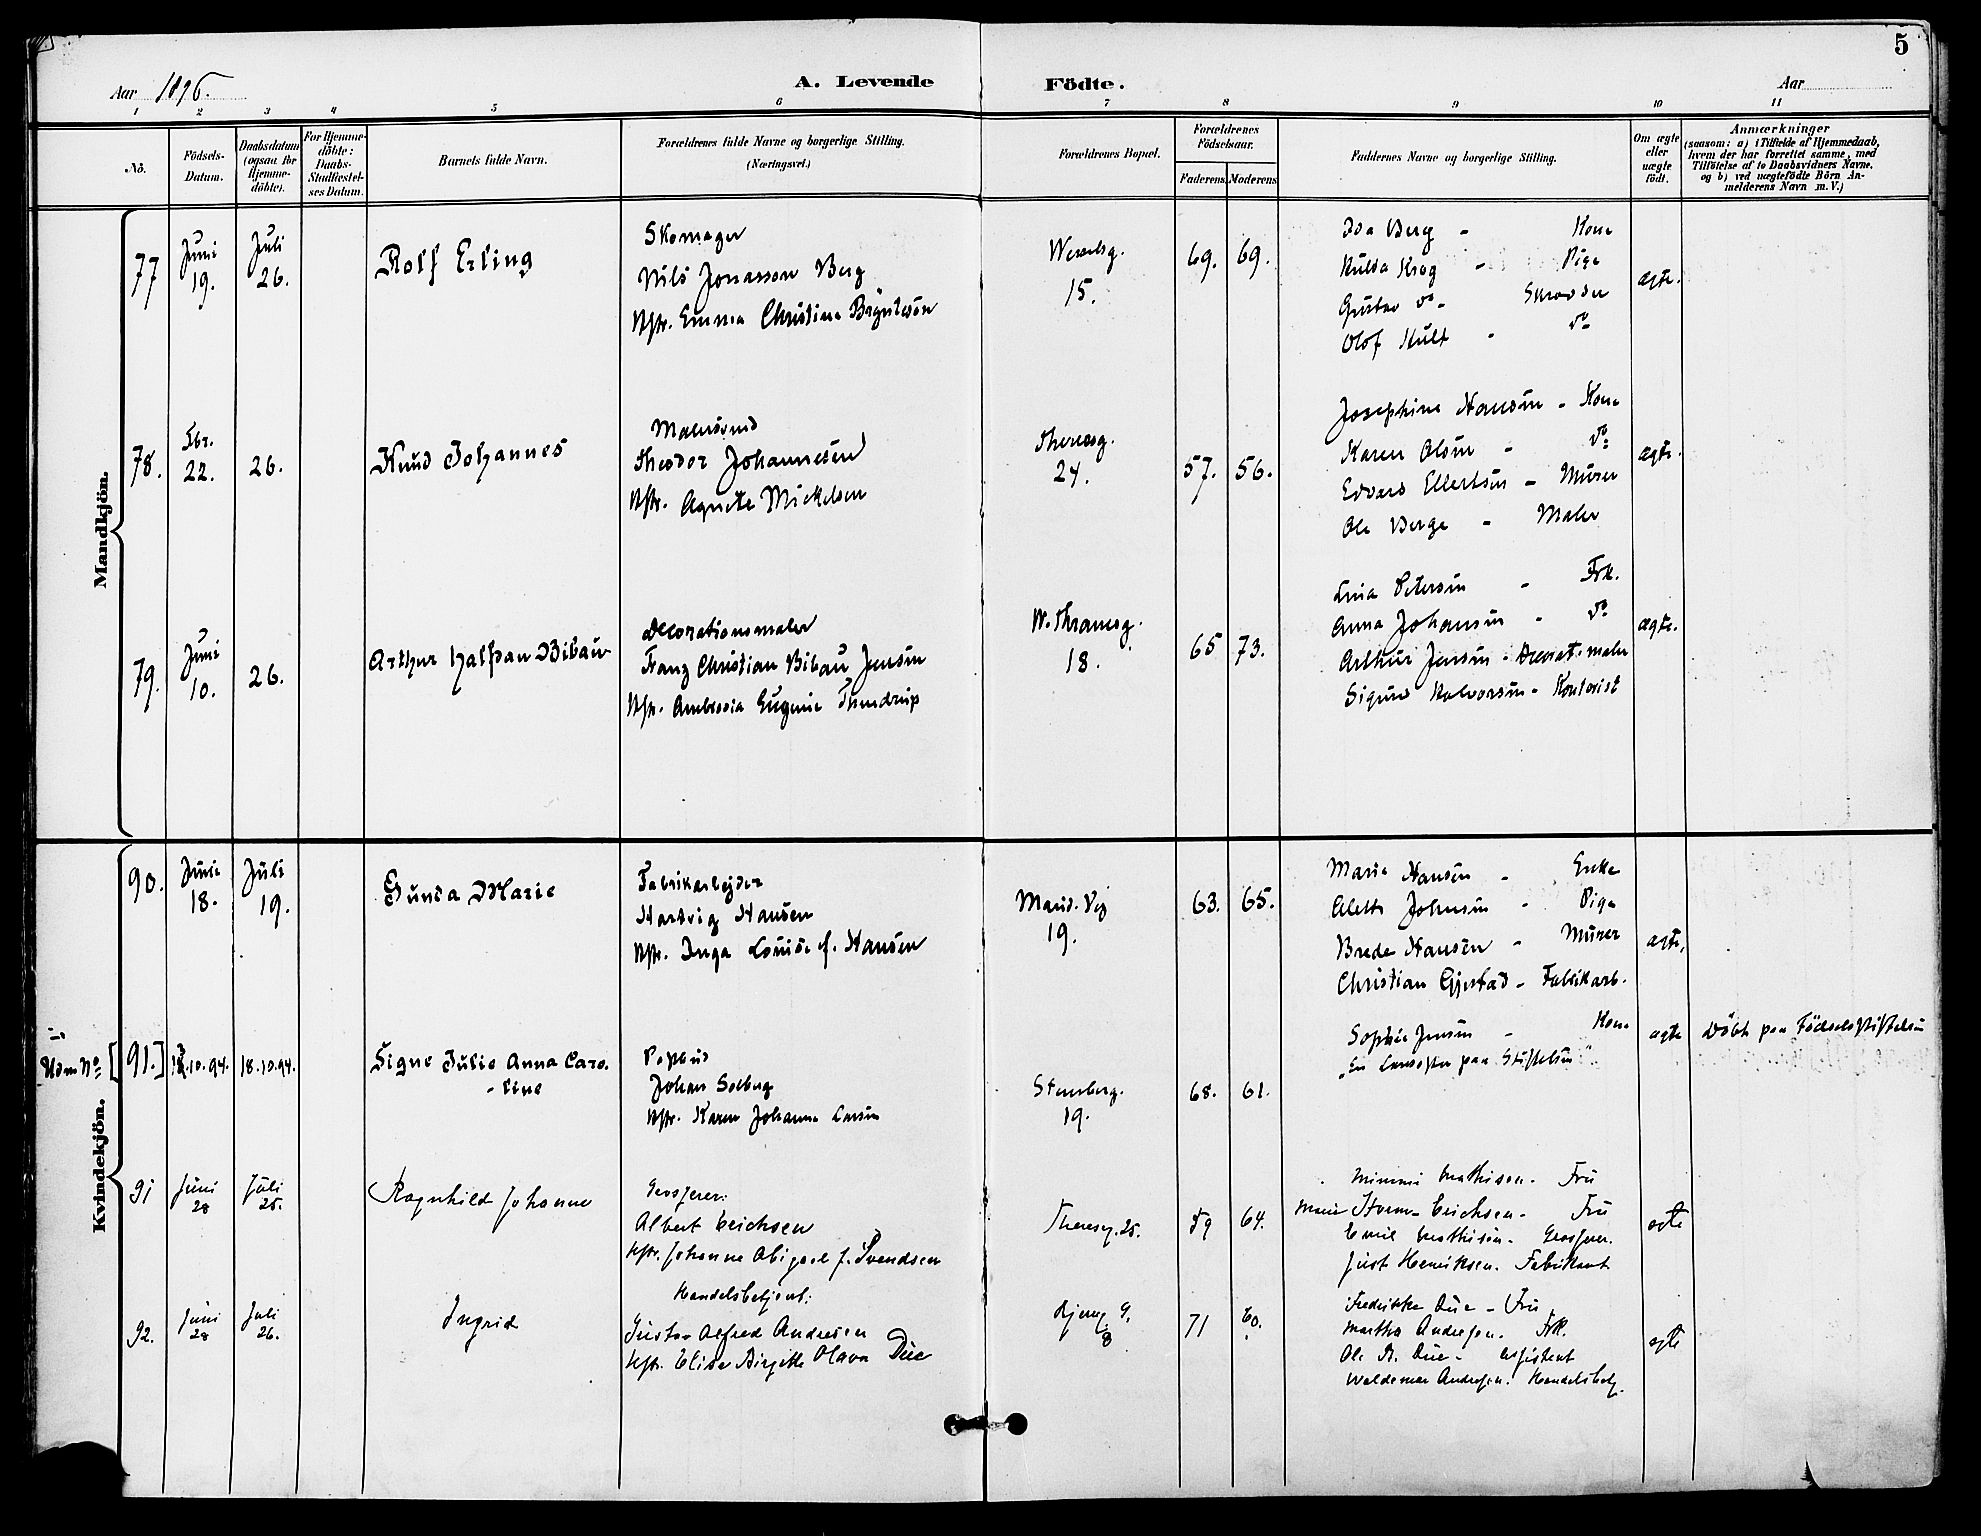 5
Aar 1896.
A. Levende Födte.
Aar
1 2 3 4 5 6 7 8 9 10 11
No.
Födsels-Datum.
Daabsdatum (ogsaa for Hjemmedöbte).
For Hjemmedöbte: Daabs-Stadfæstelses Datum.
Barnets fulde Navn.
Forældrenes fulde Navne og borgerlige Stilling.
(Næringsvei.)
Forældrenes Bopæl.
Forældrenes Födselsaar.
Faderens. Moderens.
Faddernes Navne og borgerlige Stilling.
Om ægte eller uægte födt.
Anmærkninger
(saasom: a) i Tilfælde af Hjemmedaab,
hvem der har forrettet samme, med
Tilföielse af to Daabsvidners Navne.
og b) ved uægtefödte Börn An-
melderens Navn m. V.)
Mandkjön.
77 Juni 19. Juli 26.
Rolf Erling
Skomager
Nils Jonasson Berg
Hstr. Emma Christina
Wesselsg. 15.
69. 69.
Ida Berg - Kone
Hulda Krog - Pige
Gustav do - Skrædder
Olof Hult - do
ægte.
78. 22. 26.
Knud Johannes
Malersvend
Theodor Johannesen
Hstr. Agnete Mickelsen
Theresesg. 24.
57. 56.
Josephine Hansen - Kone
Karen Olsen - do
Edvard Ellertsen - Murer
Ole Berge - Maler
ægte.
79. Juni 10. 26.
Arthur Halfdan Bibau
Decorationsmaler
Franz Christian Bibau Jensen
Hstr. Ambrosia Eugenie
W. Thranesg. 18.
65 73.
Lina Petersen - Frk.
Anna Johansen - do
Arthur Jensen - Decorat.maler
Sigurd Halvorsen - Kontorist
ægte.
Kvindekjön.
90. Juni 18. Juli 19.
Gunda Marie
Fabrikarbejder
Hartvig Hansen
Hstr. Inga Louise f. Hansen
Marid. Vej 19.
63. 65.
Maria Hansen - Enke
Alette Johnsen - Pige
Brede Hansen - Murer
Christian Gjestad - Fabrikarb.
ægte.
Uden No [91.] .10.94. 18.10.94.
Signe Julie Anna Caro-
-line
Postbud
Johan Solberg
Hstr. Karen Johanne Larsen
Stensberg. 19.
68. 61.
Sophie Jensen - Kone
"En paa Stiftelsen"
ægte
Döbt paa Födselsstiftelsen
91 Juni 28 Juli 25.
Ragnhild Johanne
Grosserer:
Albert Erichsen
Hstr. Johanne Abigael f. Svendsen
Theresesg. 25.
59 64.
Mimmi Mathisen - Fru
Marie Storm-Erichsen - Fru
Emil Mathisen - Grosserer.
Just Henriksen. Fabrikant
ægte
92. Juni 28 Juli 26.
Ingrid
Handelsbetjent:
Gustav Alfred Andresen
Hstr. Elise Birgitte Olava Due
8
71 60.
Fredrikke Due - Fru
Martha Andresen. Frk.
Ole Due - Assistent
Waldemar Andresen. Handelsbetj.
ægte